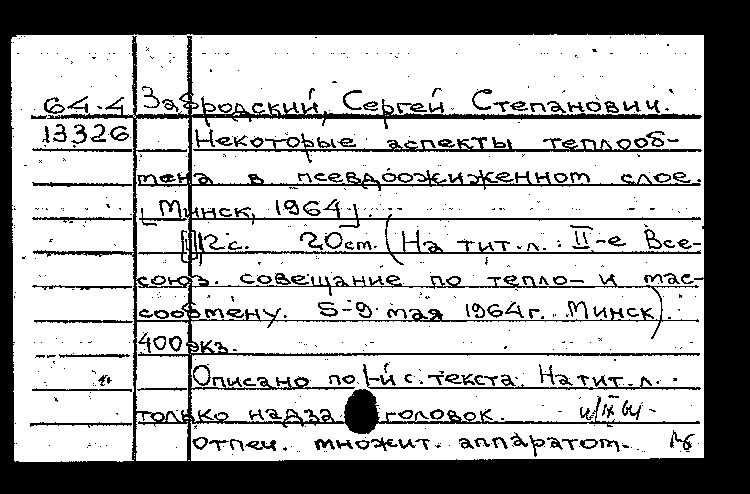 64-4 Забродский, Сергей Степанович.
13326 Некоторые аспекты теплооб-
мена в псевдоожиженном слое.
[Минск, 1964]
12 с. 20 см. (На тит. л.: II-е Все-
союз. совещание по тепло- и мас-
сообмену. 5-9 мая 1964 г. Минск).
400 экз.
Описано по 1-й с. текста. На тит. л.
только надзаголовок.
Отпеч. множит. аппаратом.